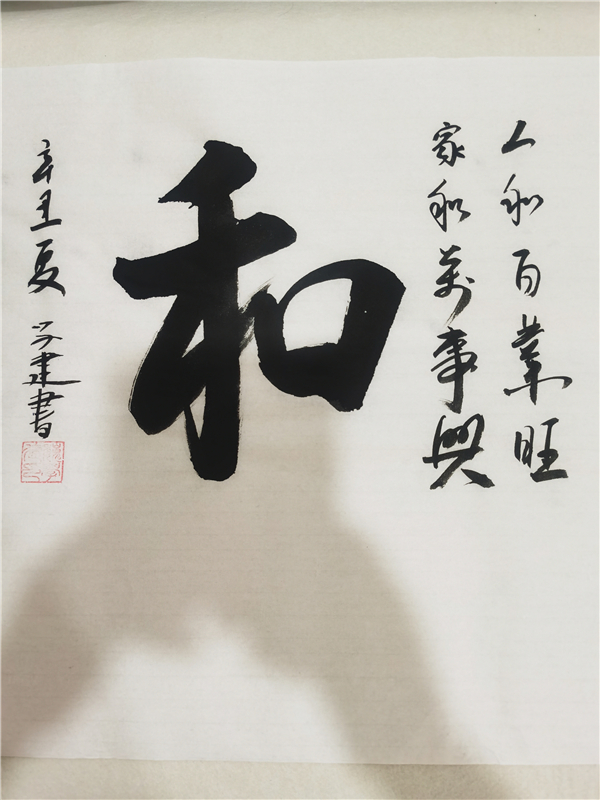 人和百業旺
家和萬事興
和
辛丑夏
建書